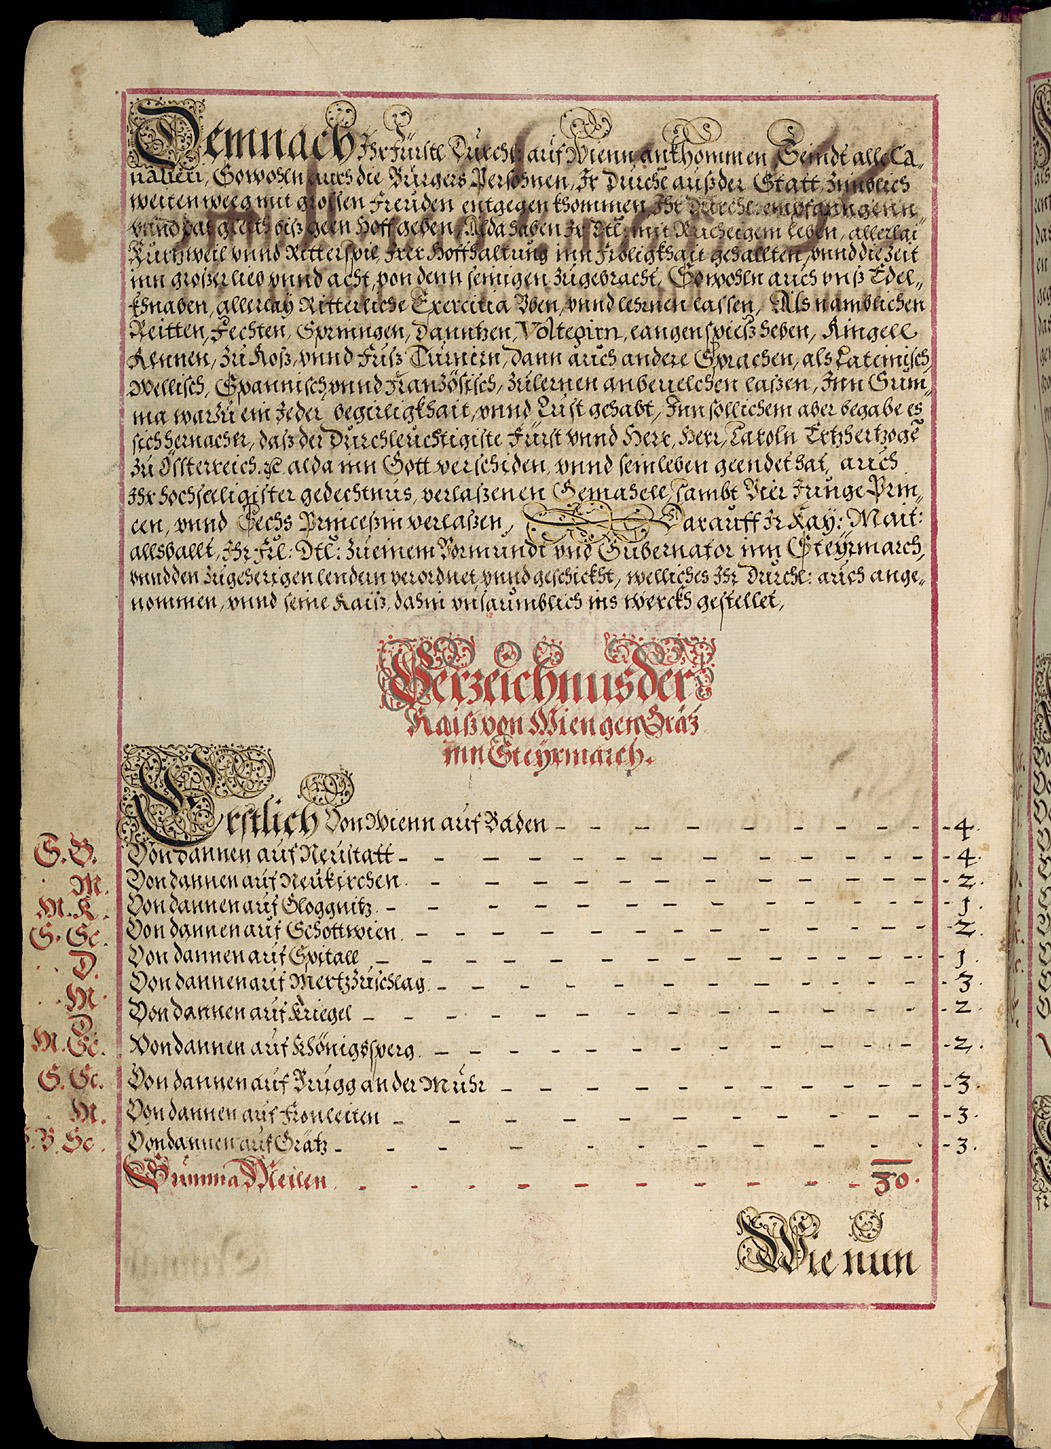 Demnach Ihr Fürstl: Dürchl: auf Wienn ankhommen, Seindt alle Ca-
ualieri, Sowohln auch die Bürgers Persohnen, Ir Dürchl: auß der Statt, Inn
weiten weeg mit grossen Freüden entgegen khommen, Ihr Dürchl: empfanngenn,
vnnd biß geen Hoff geben, Alda haben Ir Dtl: mit Rüeheigem leben, allerlai
Kürtzweil vnnd Ritterspil, Irer Hoffhaltüng inn Fröligkhait gehallten, vnnd die Zeit
inn großer lieb vnnd acht, von denn seinigen zügebracht, Sowohln auch vnß Edel-
khnaben, allerlay Ritterliche Exercitia Üben, vnnd lehrnen lassen, Als nämblichen
Reitten, Fechten, Springen, Danntzen, Voltegirn, langen spieß heben, Ringell
Rennen, zü Roß, vnnd Füß Türniern, dann auch andere Sprachen, als Lateinisch,
Wellisch, Spannisch, vnnd Französisch, zülernen anbeuelchen laßen, Inn Süm-
ma warzü ein Jeder begirligkhait, vnnd Lüst gehabt, Inn sollichem aber begabe es
sich hernacher, daß der Dürchleüchtigiste Fürst vnnd Herr, Herr, Caroln Ertzhertzoge
zü Össterreich. ꝛc. alda inn Gott verschiden, vnnd sein leben geendet hat, auch
Ihr hochseeligister gedechtnüs, verlaßenen Gemahell, sambt Vier Jünge Prin-
cen, vnnd Sechs Princeßin verlaßen, Darauff Ir Kay: Mait:
allsballt, Ihr Frl: Dtl: zü einem Vormündt vnd Gübernator inn Steÿrmarch,
vnnd den zügeherigen lendern verordnet, vnnd geschickht, welliches Ihr Dürchl: auch ange-
nommen, vnnd seine Raiß, dahin vnsaümblich ins werckh gestellet,
Verzeichnus der
Raiß von Wien gen Grätz
inn Steÿrmarch.
Erstlich Von Wienn auf Baden - 4.
S.B. Von dannen auf Neüstatt - 4.
M. Von dannen auf Neükirchen. - 2.
M.K. Von dannen auf Gloggnitz. - 1.
S. Sc. Von dannen auf Schottwien. - 2.
D. Von dannen auf Spitall - 1.
M. Von dannen auf Mertzzüschlag - 3.
D. Von dannen auf Kriegel - 2.
M. Sc. Von dannen auf Königssperg. - 2.
S. Sc. Von dannen auf Brügg an der Mühr - 3.
M. Von dannen auf Fronleiten - 3.
V. Sc. Von dannen auf Grätz - 3.
Sümma Meilen. 30.
Wie nun